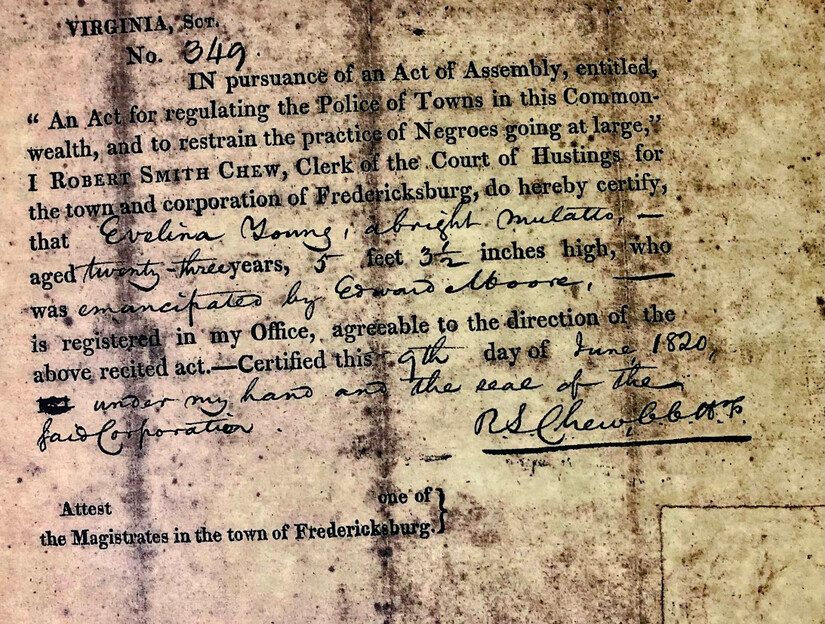 VIRGINIA, Sct.
No. 349.
IN pursuance of an Act of Assembly, entitled,
“ An Act for regulating the Police of Towns in this Common-
wealth, and to restrain the practice of Negroes going at large,”
I ROBERT SMITH CHEW, Clerk of the Court of Hustings for
the town and corporation of Fredericksburg, do hereby certify,
that Evelina Young, a bright mulatto, —
aged twenty-three years, 5 feet 3½ inches high, who
was emancipated by Edward Moore, —
is registered in my Office, agreeable to the direction of the
above recited act.—Certified this 9th day of June, 1820,
under my hand and the seal of the
said Corporation.
R S Chew,
Attest one of
the Magistrates in the town of Fredericksburg.}